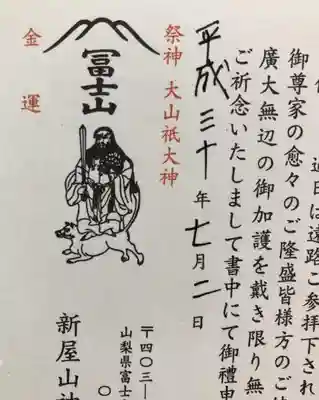 過日は遠路ご参拝下され
御尊家の愈々のご隆盛皆様方のご
廣大無辺の御加護を戴き限り無
ご祈念いたしまして書中にて御禮申
平成三十年七月二日
祭神 大山祇大神
冨士山
金運
〒四〇三―
〇
山梨県富士
新屋山神